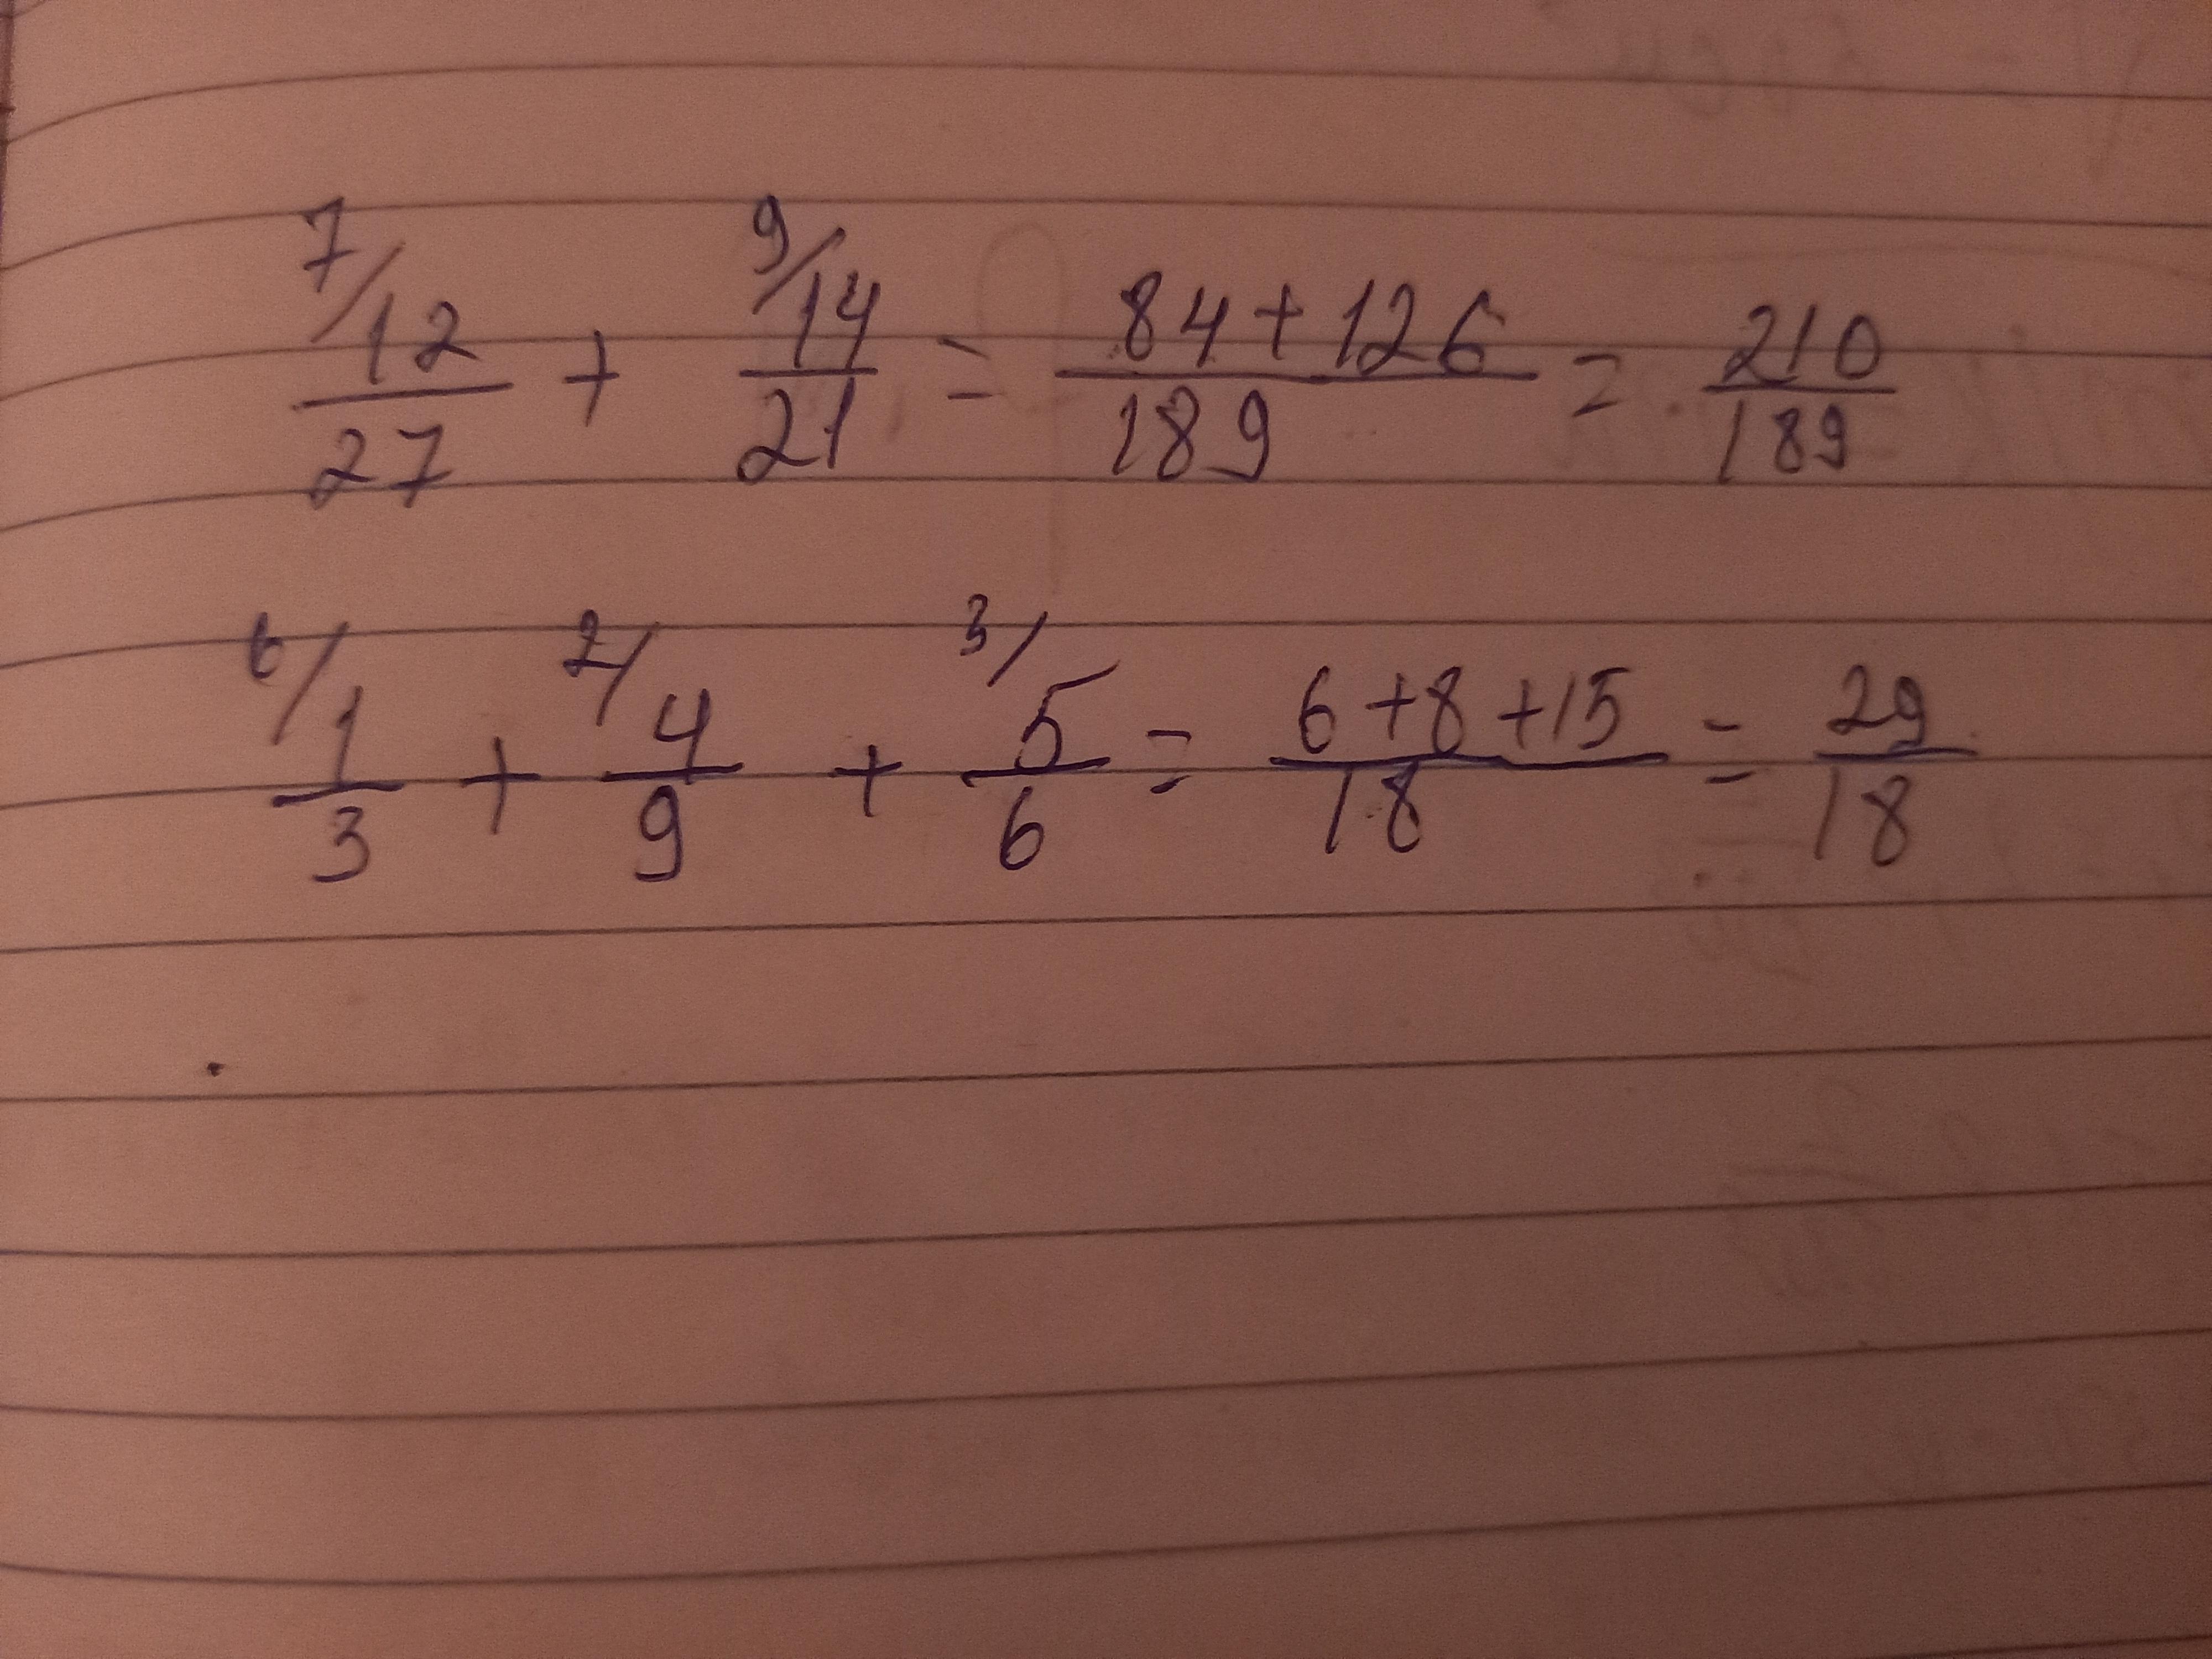 7/ 12/27 + 9/ 14/21 = 84+126/189 = 210/189
6/ 1/3 + 2/ 4/9 + 3/ 5/6 = 6+8+15/18 = 29/18